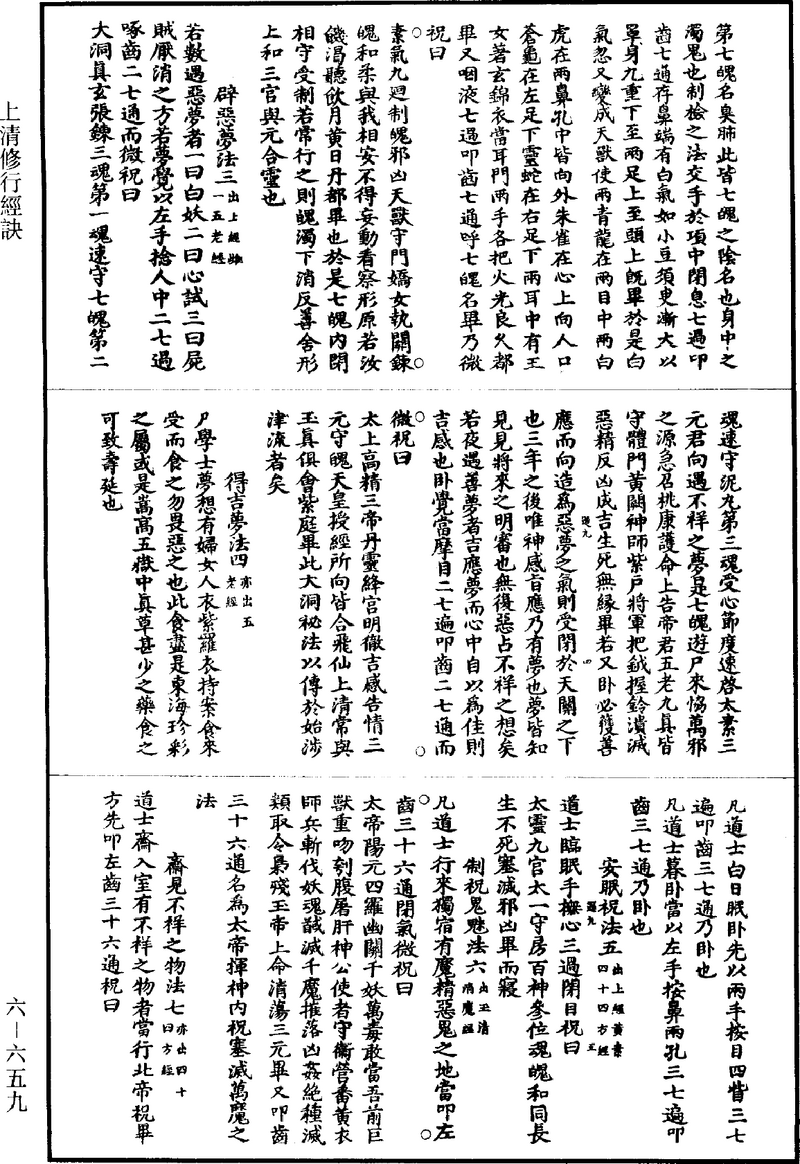 上清修行經訣
第七魄名臭肺此皆七魄之陰名也身中之
濁鬼也制檢之法交手於項中閉息七過叩
齒七通存鼻端有白氣如小豆須臾漸大以
罩身九重下至兩足上至頭上既畢於是白
氣忽又變成天獸使兩青龍在兩目中兩白
虎在兩鼻孔中皆向外朱雀在心上向人口
蒼龜在左足下靈蛇在右足下兩耳中有玉
女著玄錦衣當耳門兩手各把火光良久都
畢又咽液七過叩齒七通呼七魄名畢乃微
祝曰
素氣九迴制魄邪凶天獸守門嬌女執關鍊
魄和柔與我相安不得妄動看察形原若汝
饑渴聽飲月黃日丹都畢也於是七魄內閉
相守受制若常行之則魄濁下消反善合形
上和三官與元合靈也
辟惡夢法三出上經
一五老經
若數遇惡夢者一曰白妖二曰心試三曰屍
賊厭消之方若夢覺以左手捻人中二七過
啄齒二七通而微祝曰
大洞真玄張鍊三魂第一魂速守七魄第二
魂速守泥丸第三魂受心節度速啓太素三
元君向遇不祥之夢是七魄遊尸來協萬邪
之源急召桃康護命上告帝君五老九真皆
守體門黃闕神師紫戶將軍把鉞握鈴潰滅
惡精反凶成吉生死無緣畢若又臥必獲善
應而向造為惡夢之氣則受閉於天關之下
也三年之後唯神感旨應乃有夢也夢皆知
見見將來之明審也無復惡占不祥之想矣
若夜遇善夢者吉應夢而心中自以為佳則
吉感也臥覺當摩目二七遍叩齒二七通而
微祝曰
太上高精三帝丹靈絳宮明徹吉感告情三
元守魄天皇授經所向皆合飛仙上清常與
玉真俱會紫庭畢此大洞祕法以傳於始涉
津流者矣
得吉夢法四亦出五
老經
凡學士夢想有婦女人衣紫羅衣持案食來
受而食之勿畏惡之也此食盡是東海珍彩
之屬或是嵩高五嶽中真草甚少之藥食之
可致壽延也
凡道士白日眠臥先以兩手按目四眥三七
遍叩齒三七通乃臥也
凡道士暮臥當以左手按鼻兩孔三七遍叩
齒三七通乃臥也
安眠祝法五出上經黃素
四十四方經
道士臨眠手撫心三過閉目祝曰
太靈九宮太一守房百神參位魂魄和同長
生不死塞滅邪凶畢而寢
制祝鬼魅法六出玉清
消魔經
凡道士行來獨宿有魔精惡鬼之地當叩左
齒三十六通閉氣微祝曰
太帝陽元四羅幽關千妖萬毒敢當吾前巨
獸重吻刳腹屠肝神公使者守衛營番黃衣
師兵斬伐妖魂馘滅千魔摧落凶姦絕種滅
類取令梟殘玉帝上命清蕩三元畢又叩齒
三十六通名為太帝揮神內祝塞滅萬魔之
法
齋見不祥之物法七亦出四十
四方經
道士齋入室有不祥之物者當行北帝祝畢
方先叩左齒三十六通祝曰
六－六五九